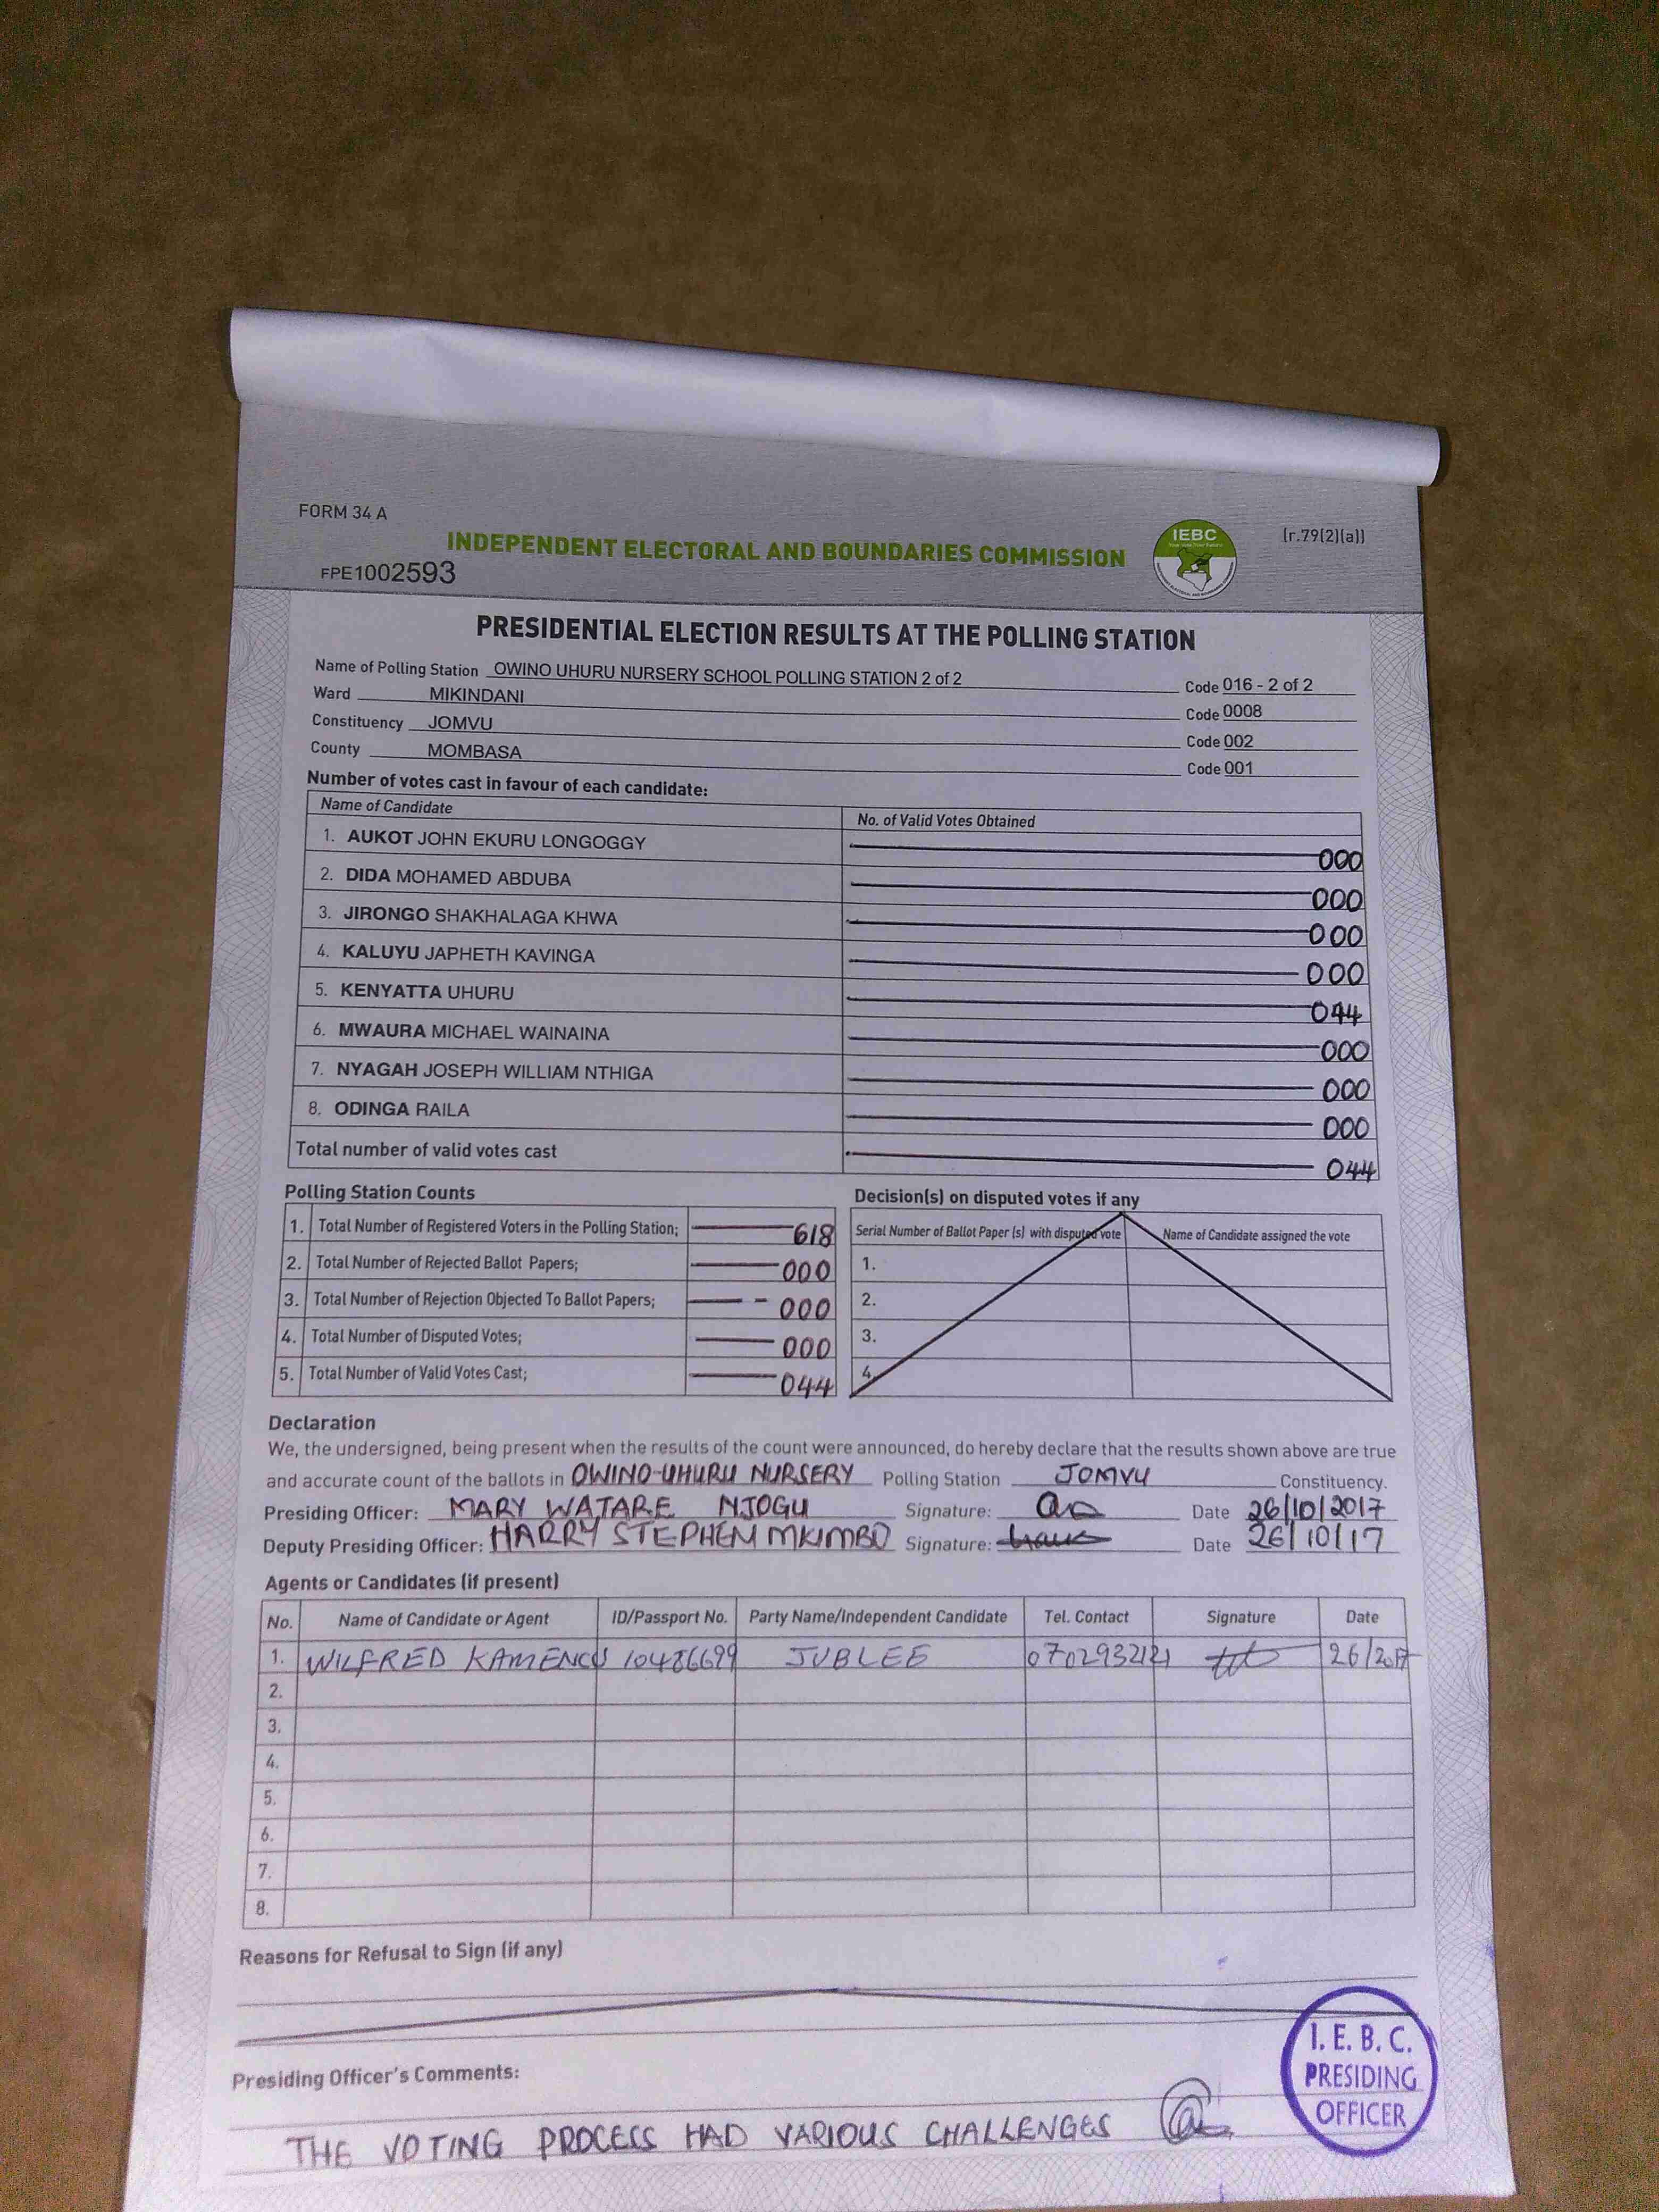 FORM 34 A
(r.79(2)(a))
IEBC
INDEPENDENT ELECTORAL AND BOUNDARIES COMMISSION
FPE1002593
PRESIDENTIAL ELECTION RESULTS AT THE POLLING STATION
Name of Polling Station OWINO UHURU NURSERY SCHOOL POLLING STATION 2 of 2 Code 016 - 2 of 2
Ward MIKINDANI Code 0008
Constituency JOMVU Code 002
County MOMBASA Code 001
Number of votes cast in favour of each candidate:
Name of Candidate No. of Valid Votes Obtained
1. AUKOT JOHN EKURU LONGOGGY 000
2. DIDA MOHAMED ABDUBA 000
3. JIRONGO SHAKHALAGA KHWA 000
4. KALUYU JAPHETH KAVINGA 000
5. KENYATTA UHURU 044
6. MWAURA MICHAEL WAINAINA 000
7. NYAGAH JOSEPH WILLIAM NTHIGA 000
8. ODINGA RAILA 000
Total number of valid votes cast 044
Polling Station Counts
1. Total Number of Registered Voters in the Polling Station; 618
2. Total Number of Rejected Ballot Papers; 000
3. Total Number of Rejection Objected To Ballot Papers; 000
4. Total Number of Disputed Votes; 000
5. Total Number of Valid Votes Cast; 044
Decision(s) on disputed votes if any
Serial Number of Ballot Paper (s) with disputed vote Name of Candidate assigned the vote
1.
2.
3.
4.
Declaration
We, the undersigned, being present when the results of the count were announced, do hereby declare that the results shown above are true
and accurate count of the ballots in OWINO-UHURU NURSERY Polling Station JOMVU Constituency.
Presiding Officer: MARY WATARE NJOGU Signature: Date 26/10/2017
Deputy Presiding Officer: HARRY STEPHEN MKIMBO Signature: Date 26/10/17
Agents or Candidates (if present)
No. Name of Candidate or Agent ID/Passport No. Party Name/Independent Candidate Tel. Contact Signature Date
1. WILFRED 10486699 JUBLEE 0702932121 26/2017
2.
3.
4.
5.
6.
7.
8.
Reasons for Refusal to Sign (if any)
Presiding Officer's Comments:
THE VOTING PROCESS HAD VARIOUS CHALLENGES
I. E. B. C.
PRESIDING
OFFICER